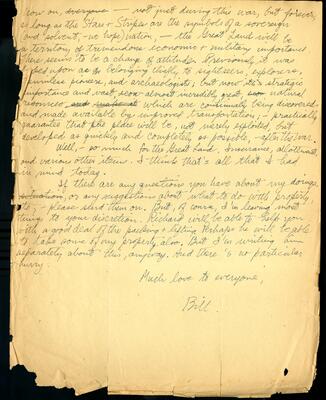 now on everyone — not just during this war, but forever,
so long as the Stars + Stripes are the symbols of a sovereign
(and solvent, we hope) nation, — the Great Land will be
a territory of tremendous economic + military importance.
There seems to be a change of attitude. Previously, it was
looked upon as a belonging chiefly to sightseers, explorers,
primitive pioneers, and archaeologists; but now, its strategic
importance and vast, even almost incredibly great, natural
resources which are continually being discovered
and made available by improved transportation, — practically
guarantee that the place will be, not merely exploited, but
developed as quickly and completely as possible, after the war.
Well, — so much for the Great Land, Insurance, allotment,
and various other items. I think that's all that I had
in mind today.
If there are any questions you have about my doings,
or any suggestions about what to do with property
etc, please send them on. But, of course, I'm leaving most
things to your discretion. Richard will be able to help you
with a good deal of the packing + lifting. Perhaps he will be able
to take some of my property, also. But I'm writing him
separately about this, anyway. And there's no particular
hurry.
Much love to everyone,
Bill